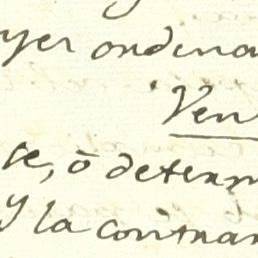 yer ordena
Ven
se, ó determ
y la contrar